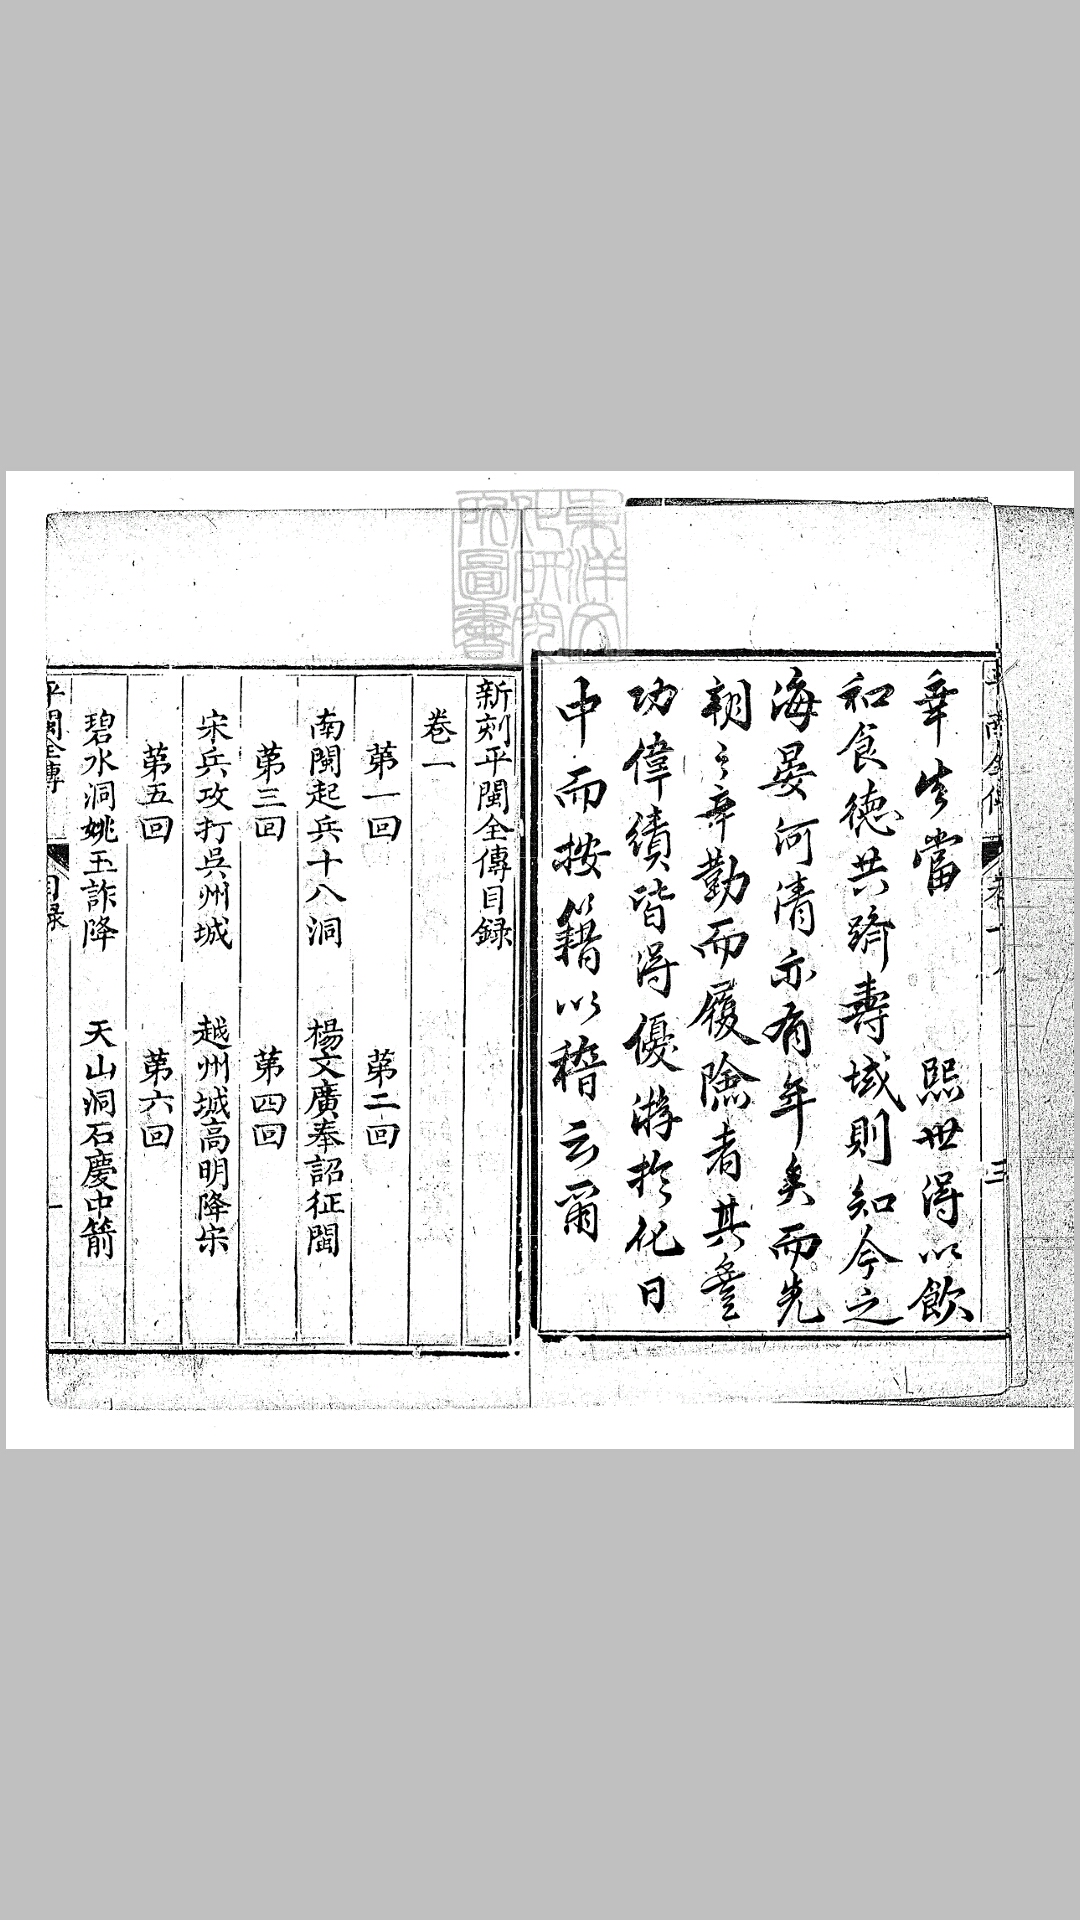 幸生當 熙世得以飲
和食德共躋壽域則知今之
海晏河清亦有年矣而先
朝之辛勤而履險者其豐
功偉績皆得優游於化日
中而按籍以稽云爾
新刻平閩全傳目録
卷一
第一回 第二回
南閩起兵十八洞 楊文廣奉詔征閩
第三回 第四回
宋兵攻打吳州城 越州城高明降宋
第五回 第六回
碧水洞姚玉詐降 天山洞石慶中箭
平閩全傳 目録 一